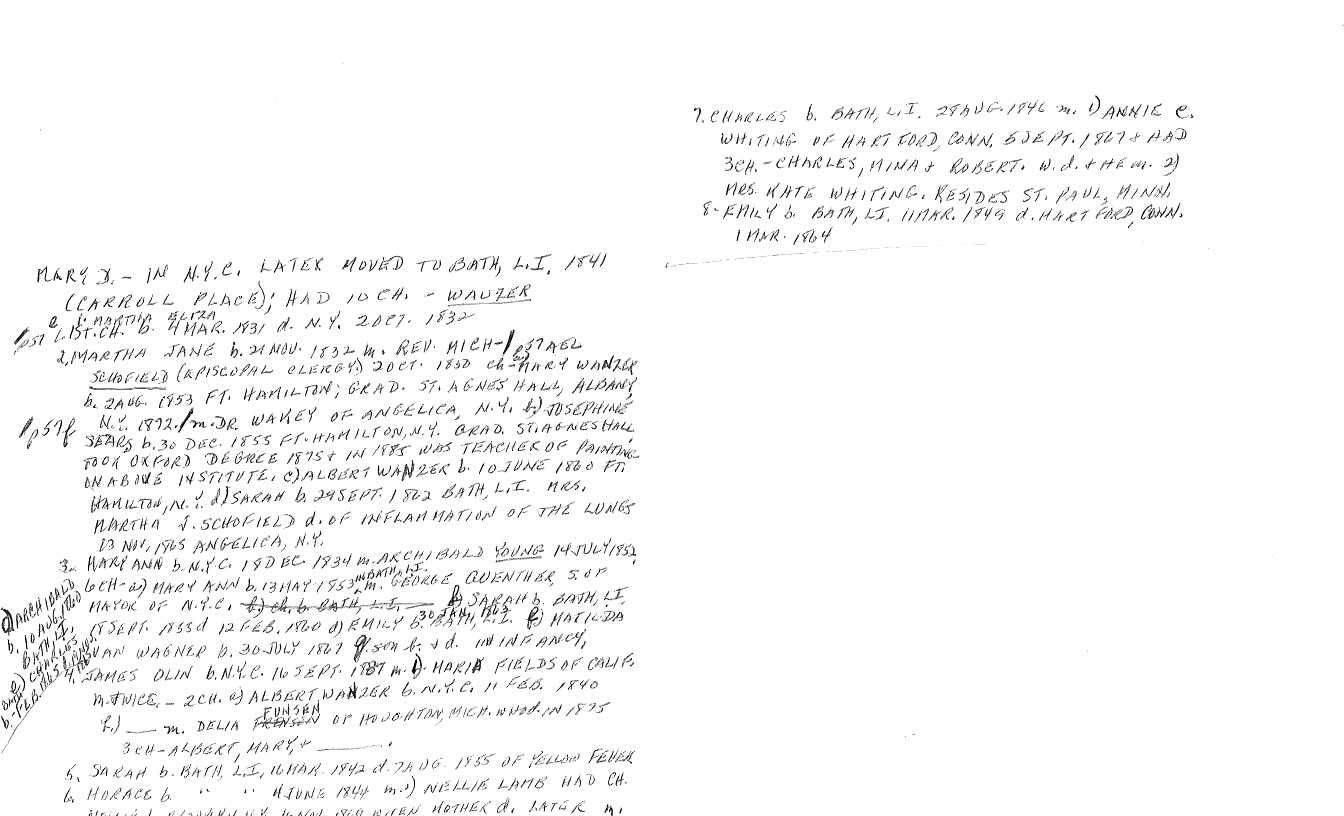 MARY D. – IN N.Y.C. LATER MOVED TO BATH, L.I. 1841
(CARROLL PLACE); HAD 10 CH. – WANZER
1. MARTHA ELIZA
p57 1ST. CH. b. 4 MAR. 1831 d. N.Y. 2 OCT. 1832
2. MARTHA JANE b. 21 NOV. 1832 m. REV. MICH-/p57AEL
SCHOFIELD (EPISCOPAL CLERGY) 2 OCT. 1850 ch-a) MARY WANZER
b. 2 AUG. 1853 FT. HAMILTON; GRAD. ST. AGNES HALL, ALBANY,
N.Y. 1872./m. DR. WAKEY OF ANGELICA, N.Y. b) JOSEPHINE
/p57f SEARS b. 30 DEC. 1855 FT. HAMILTON, N.Y. GRAD. ST. AGNES HALL
TOOK OXFORD DEGREE 1875 & IN 1885 WAS TEACHER OF PAINTING
ON ABOVE INSTITUTE. c) ALBERT WANZER b. 10 JUNE 1860 FT.
HAMILTON, N.Y. d) SARAH b. 29 SEPT. 1862 BATH, L.I. MRS.
MARTHA J. SCHOFIELD d. OF INFLAMMATION OF THE LUNGS
13 NOV. 1865 ANGELICA, N.Y.
3. MARY ANN b. N.Y.C. 18 DEC. 1834 m. ARCHIBALD YOUNG 14 JULY 1852
6 CH-a) MARY ANN b. 13 MAY 1853 IN BATH, L.I. m. GEORGE GUENTHER, S. OF
MAYOR OF N.Y.C. b) ch. b. BATH, L.I. — b) SARAH b. BATH, L.I.
18 SEPT. 1855 d 12 FEB. 1860 d) EMILY b. 30 JAN. 1863 BATH, L.I. f) MATILDA
VAN WAGNER b. 30 JULY 1867 g. son b. & d. IN INFANCY,
c) ARCHIBALD
b. 10 AUG. 1860
BATH, L.I.
e) CHARLES
b. FEB. 1865
4. JAMES OLIN b. N.Y.C. 16 SEPT. 1837 m. 1). MARIA FIELDS OF CALIF.
m. TWICE. – 2 CH. a) ALBERT WANZER b. N.Y.C. 11 FEB. 1840
2.) — m. DELIA FUNSEN OF HOUGHTON, MICH. who d. IN 1875
3 CH-ALBERT, MARY, & ———.
5. SARAH b. BATH, L.I, 16 MAR. 1842 d. 7 AUG. 1855 OF YELLOW FEVER
6. HORACE b. " " 4 JUNE 1844 m. 1) NELLIE LAMB HAD CH.
WHEN MOTHER d. LATER m.
7. CHARLES b. BATH, L.I. 28 AUG. 1846 m. 1) ANNIE E.
WHITING OF HARTFORD, CONN. 5 SEPT. 1867 & HAD
3 CH. – CHARLES, MINA & ROBERT. W. d. & HE m. 2)
MRS. KATE WHITING. RESIDES ST. PAUL, MINN.
8. EMILY b. BATH, L.I. 11 MAR. 1849 d. HARTFORD, CONN.
1 MAR. 1864